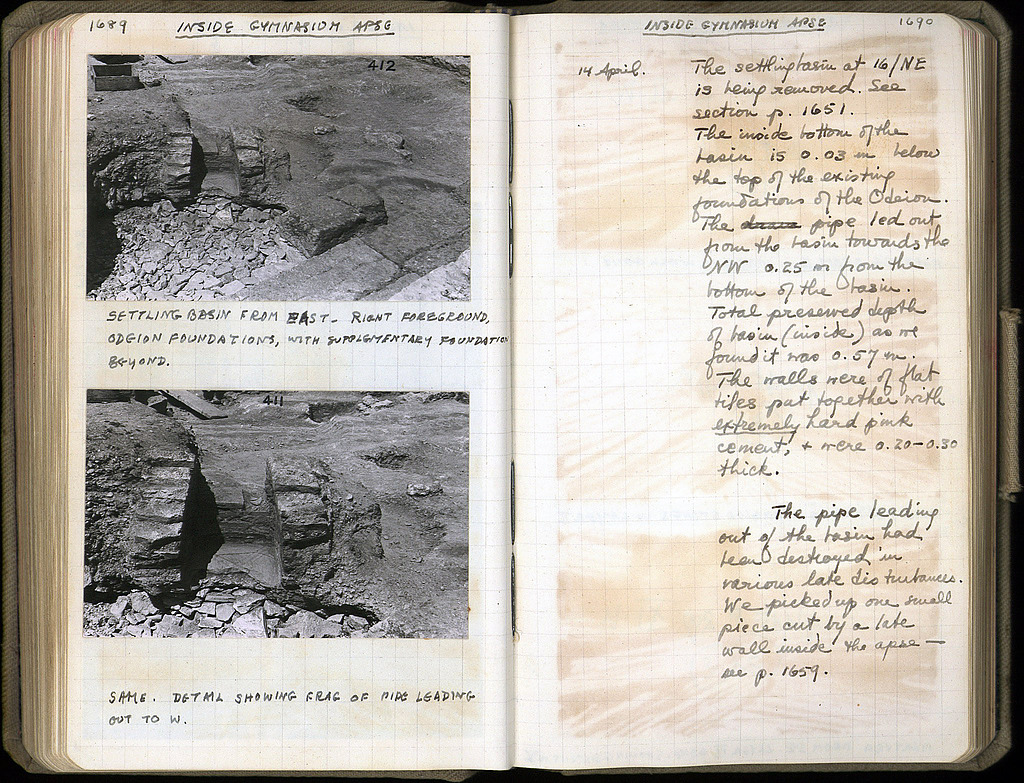 1689
INSIDE GYMNASIUM APSE
412
SETTLING BASIN FROM EAST - RIGHT FOREGROUND,
ODEION FOUNDATIONS, WITH SUPPLEMENTARY FOUNDATION
BEYOND.
411
SAME. DETAIL SHOWING FRAG OF PIPE LEADING
OUT TO W.
INSIDE GYMNASIUM APSE
1690
14 April.
The settling basin at 16/NE
is being removed. See
section p. 1651.
The inside bottom of the
basin is 0.03 m below
the top of the existing
foundations of the Odeion.
The drain pipe led out
from the basin towards the
NW 0.25 m from the
bottom of the basin.
Total preserved depth
of basin (inside) as we
found it was 0.57 m.
The walls were of flat
tiles put together with
extremely hard pink
cement, + were 0.20-0.30
thick.
The pipe leading
out of the basin had
been destroyed in
various late disturbances.
We picked up one small
piece cut by a late
wall inside the apse —
see p. 1659.